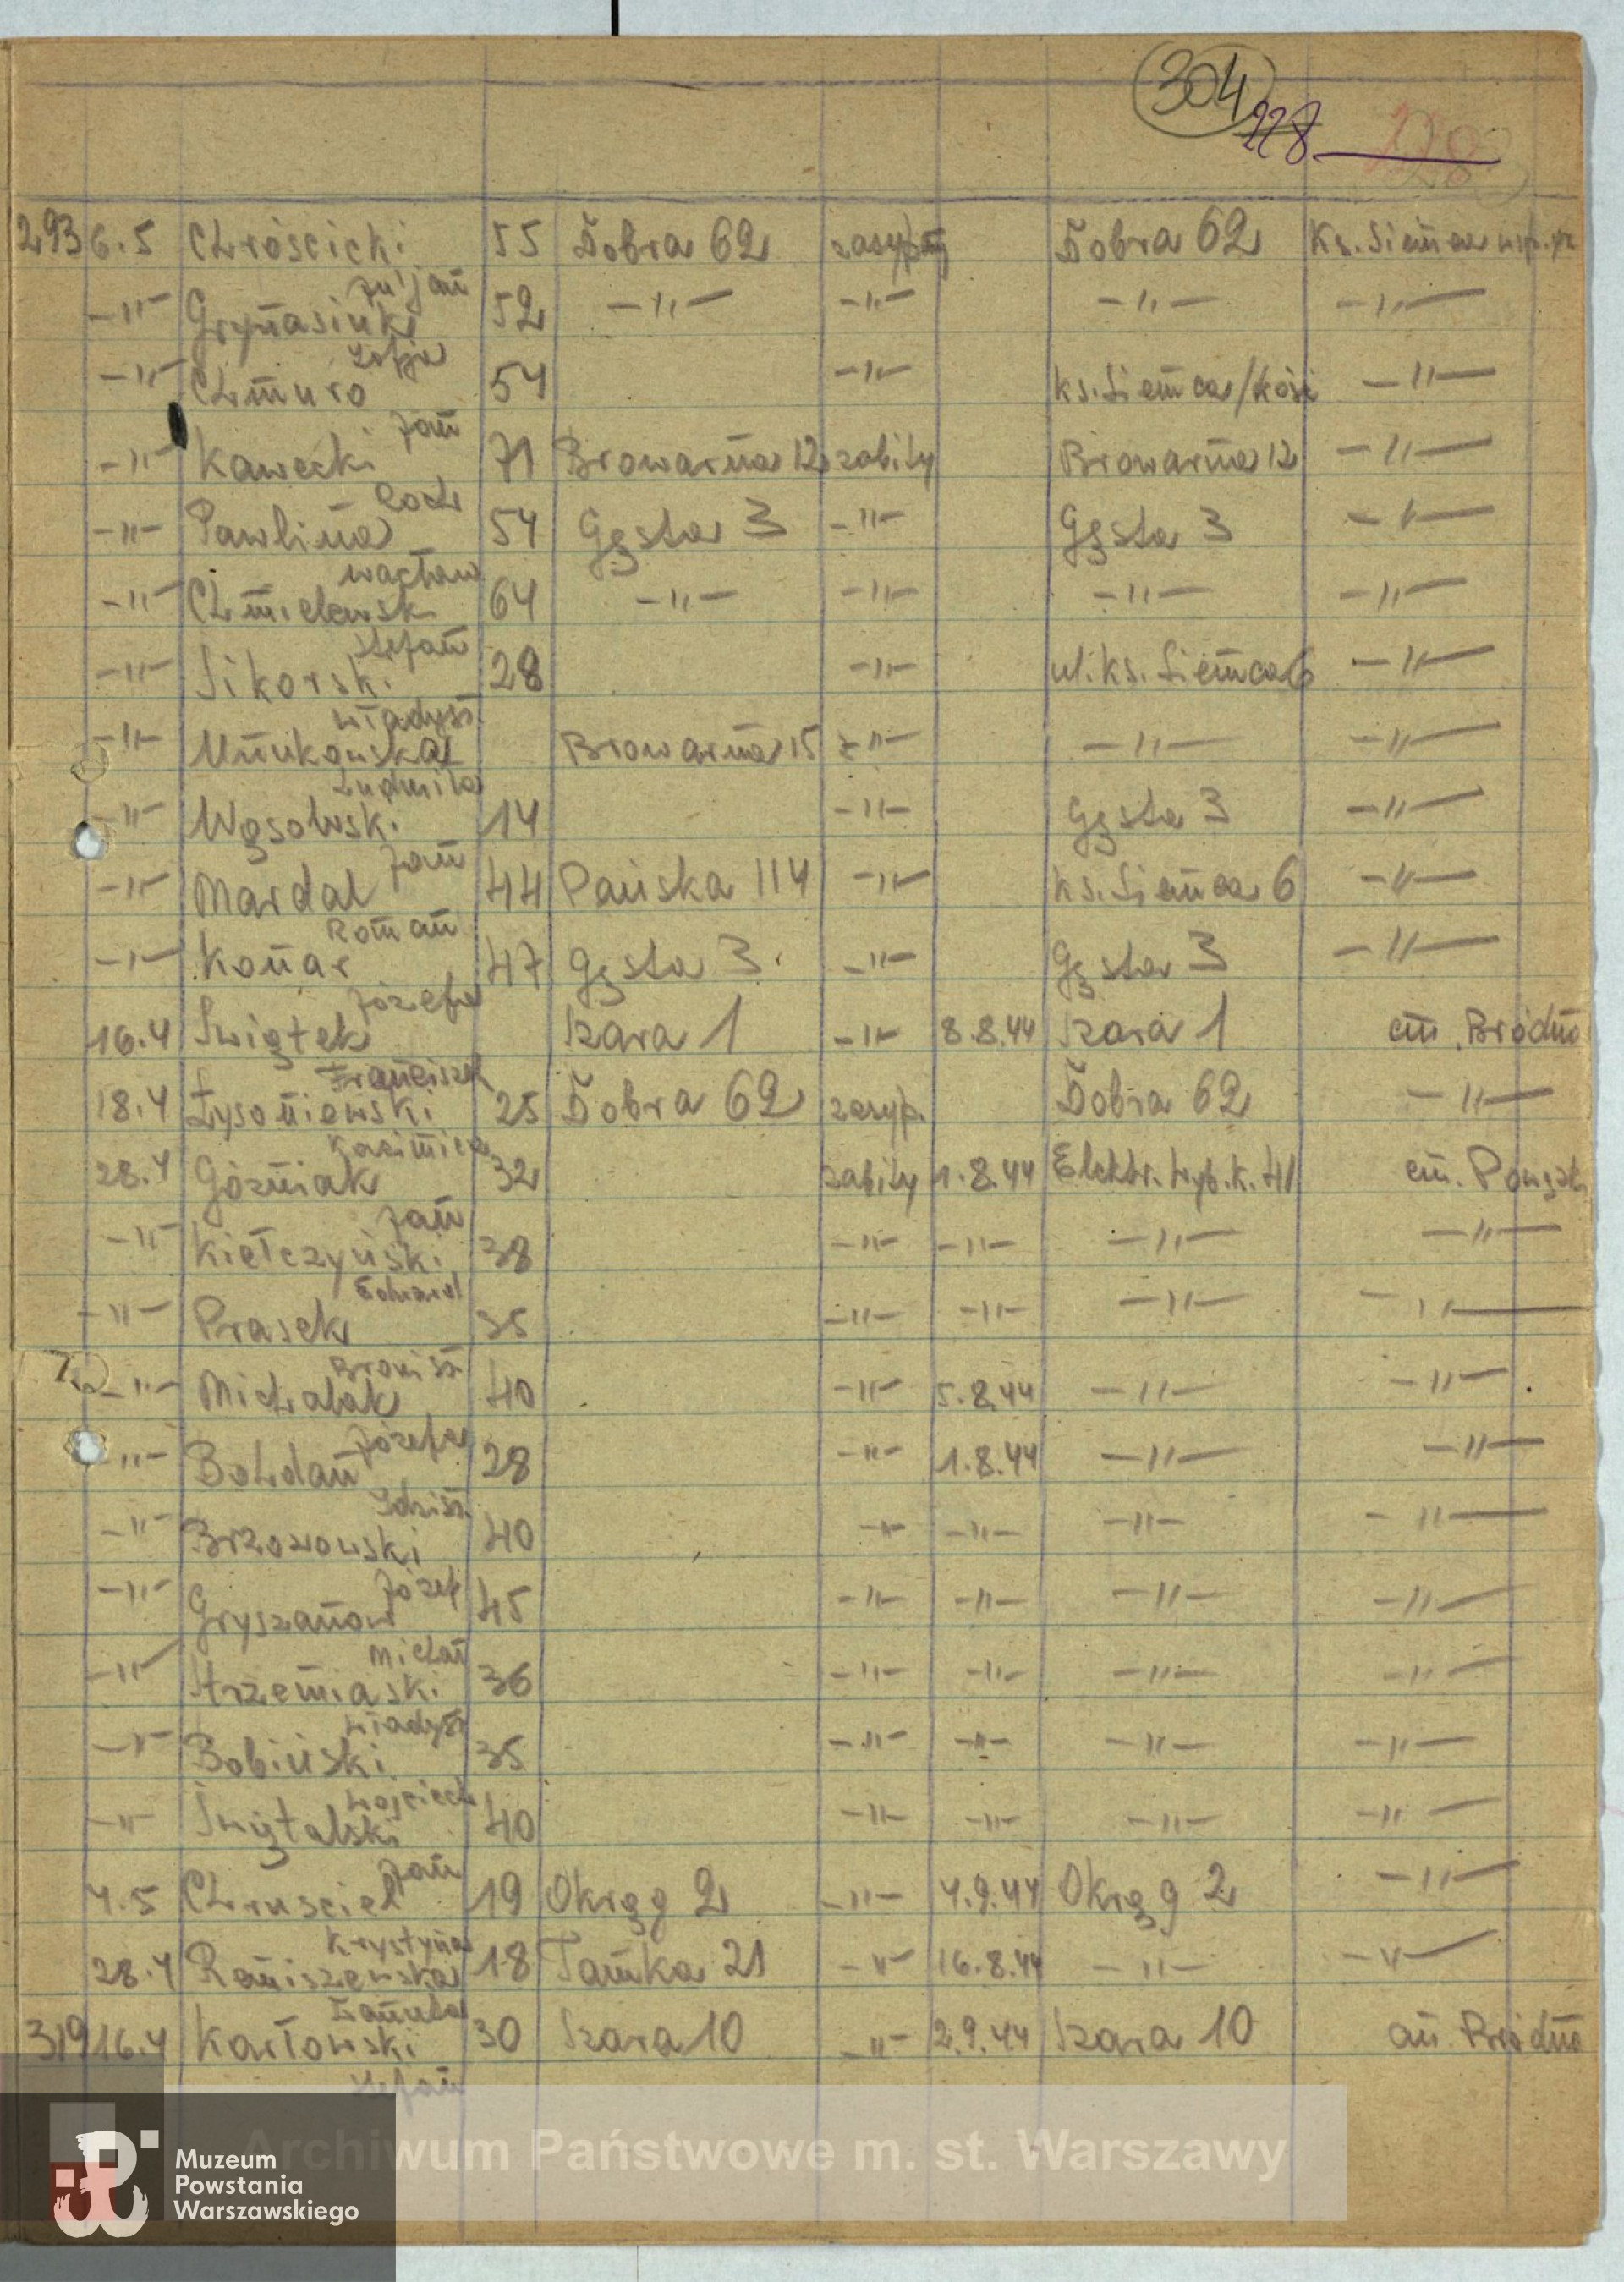 304
228
228
293 6.5 Chróscicki 55 Dobra 62 zasyp. Dobra 62 Ks. Siemca
Juljan
-"- Grynasinki 52 -"- -"- -"- -"-
Zofja
-"- Chmuro 54 -"- ks. Siemca/ -"-
Jan
-"- Kawecki 71 Browarna 12 zabity Browarna 12 -"-
Roch
-"- Pawlina 54 Gęsta 3 -"- Gęsta 3 -"-
Wacław
-"- Chmielewski 64 -"- -"- -"- -"-
Stefan
-"- Sikorski 28 -"- ul. ks. Siemca 6 -"-
Władysł.
-"- Browarna 15 -"- -"- -"-
Ludmiła
-"- Wąsowski 14 -"- Gęsta 3 -"-
Jan
-"- Mardal 44 Pańska 114 -"- ks. Siemca 6 -"-
Roman
-"- Konar 47 Gęsta 3 -"- Gęsta 3 -"-
Józefa
16.4 Świątek Szara 1 -"- 8.8.44 Szara 1 cm. Bródno
Franciszek
18.4 Łysoniewski 25 Dobra 62 zasyp. Dobra 62 -"-
Kazimierz
28.4 Góźniak 32 zabity 1.8.44 Elektr. Wyb. K. 41 cm. Powązk.
Jan
-"- Kiełczyński 38 -"- -"- -"- -"-
Edward
-"- Prasek 35 -"- -"- -"- -"-
Bronisł.
-"- Michalak 40 -"- 5.8.44 -"- -"-
Józefa
-"- Bohdan 28 -"- 1.8.44 -"- -"-
Zdzisł.
-"- Brzozowski 40 -"- -"- -"- -"-
Józef
-"- Gryszanow 45 -"- -"- -"- -"-
Michał
-"- Strzemiaski 36 -"- -"- -"- -"-
Władysł.
-"- Bobiński 35 -"- -"- -"- -"-
Wojciech
-"- Świętalski 40 -"- -"- -"- -"-
Jan
4.5 Chrusciel 19 Okrąg 2 -"- 4.9.44 Okrąg 2 -"-
Krystyna
28.4 Remiszewska 18 Tamka 21 -"- 16.8.44 -"- -"-
319 16.4 Karłowski 30 Szara 10 -"- 2.9.44 Szara 10 cm. Bródno
Stefan
Archiwum Państwowe m. st. Warszawy
Muzeum
Powstania
Warszawskiego